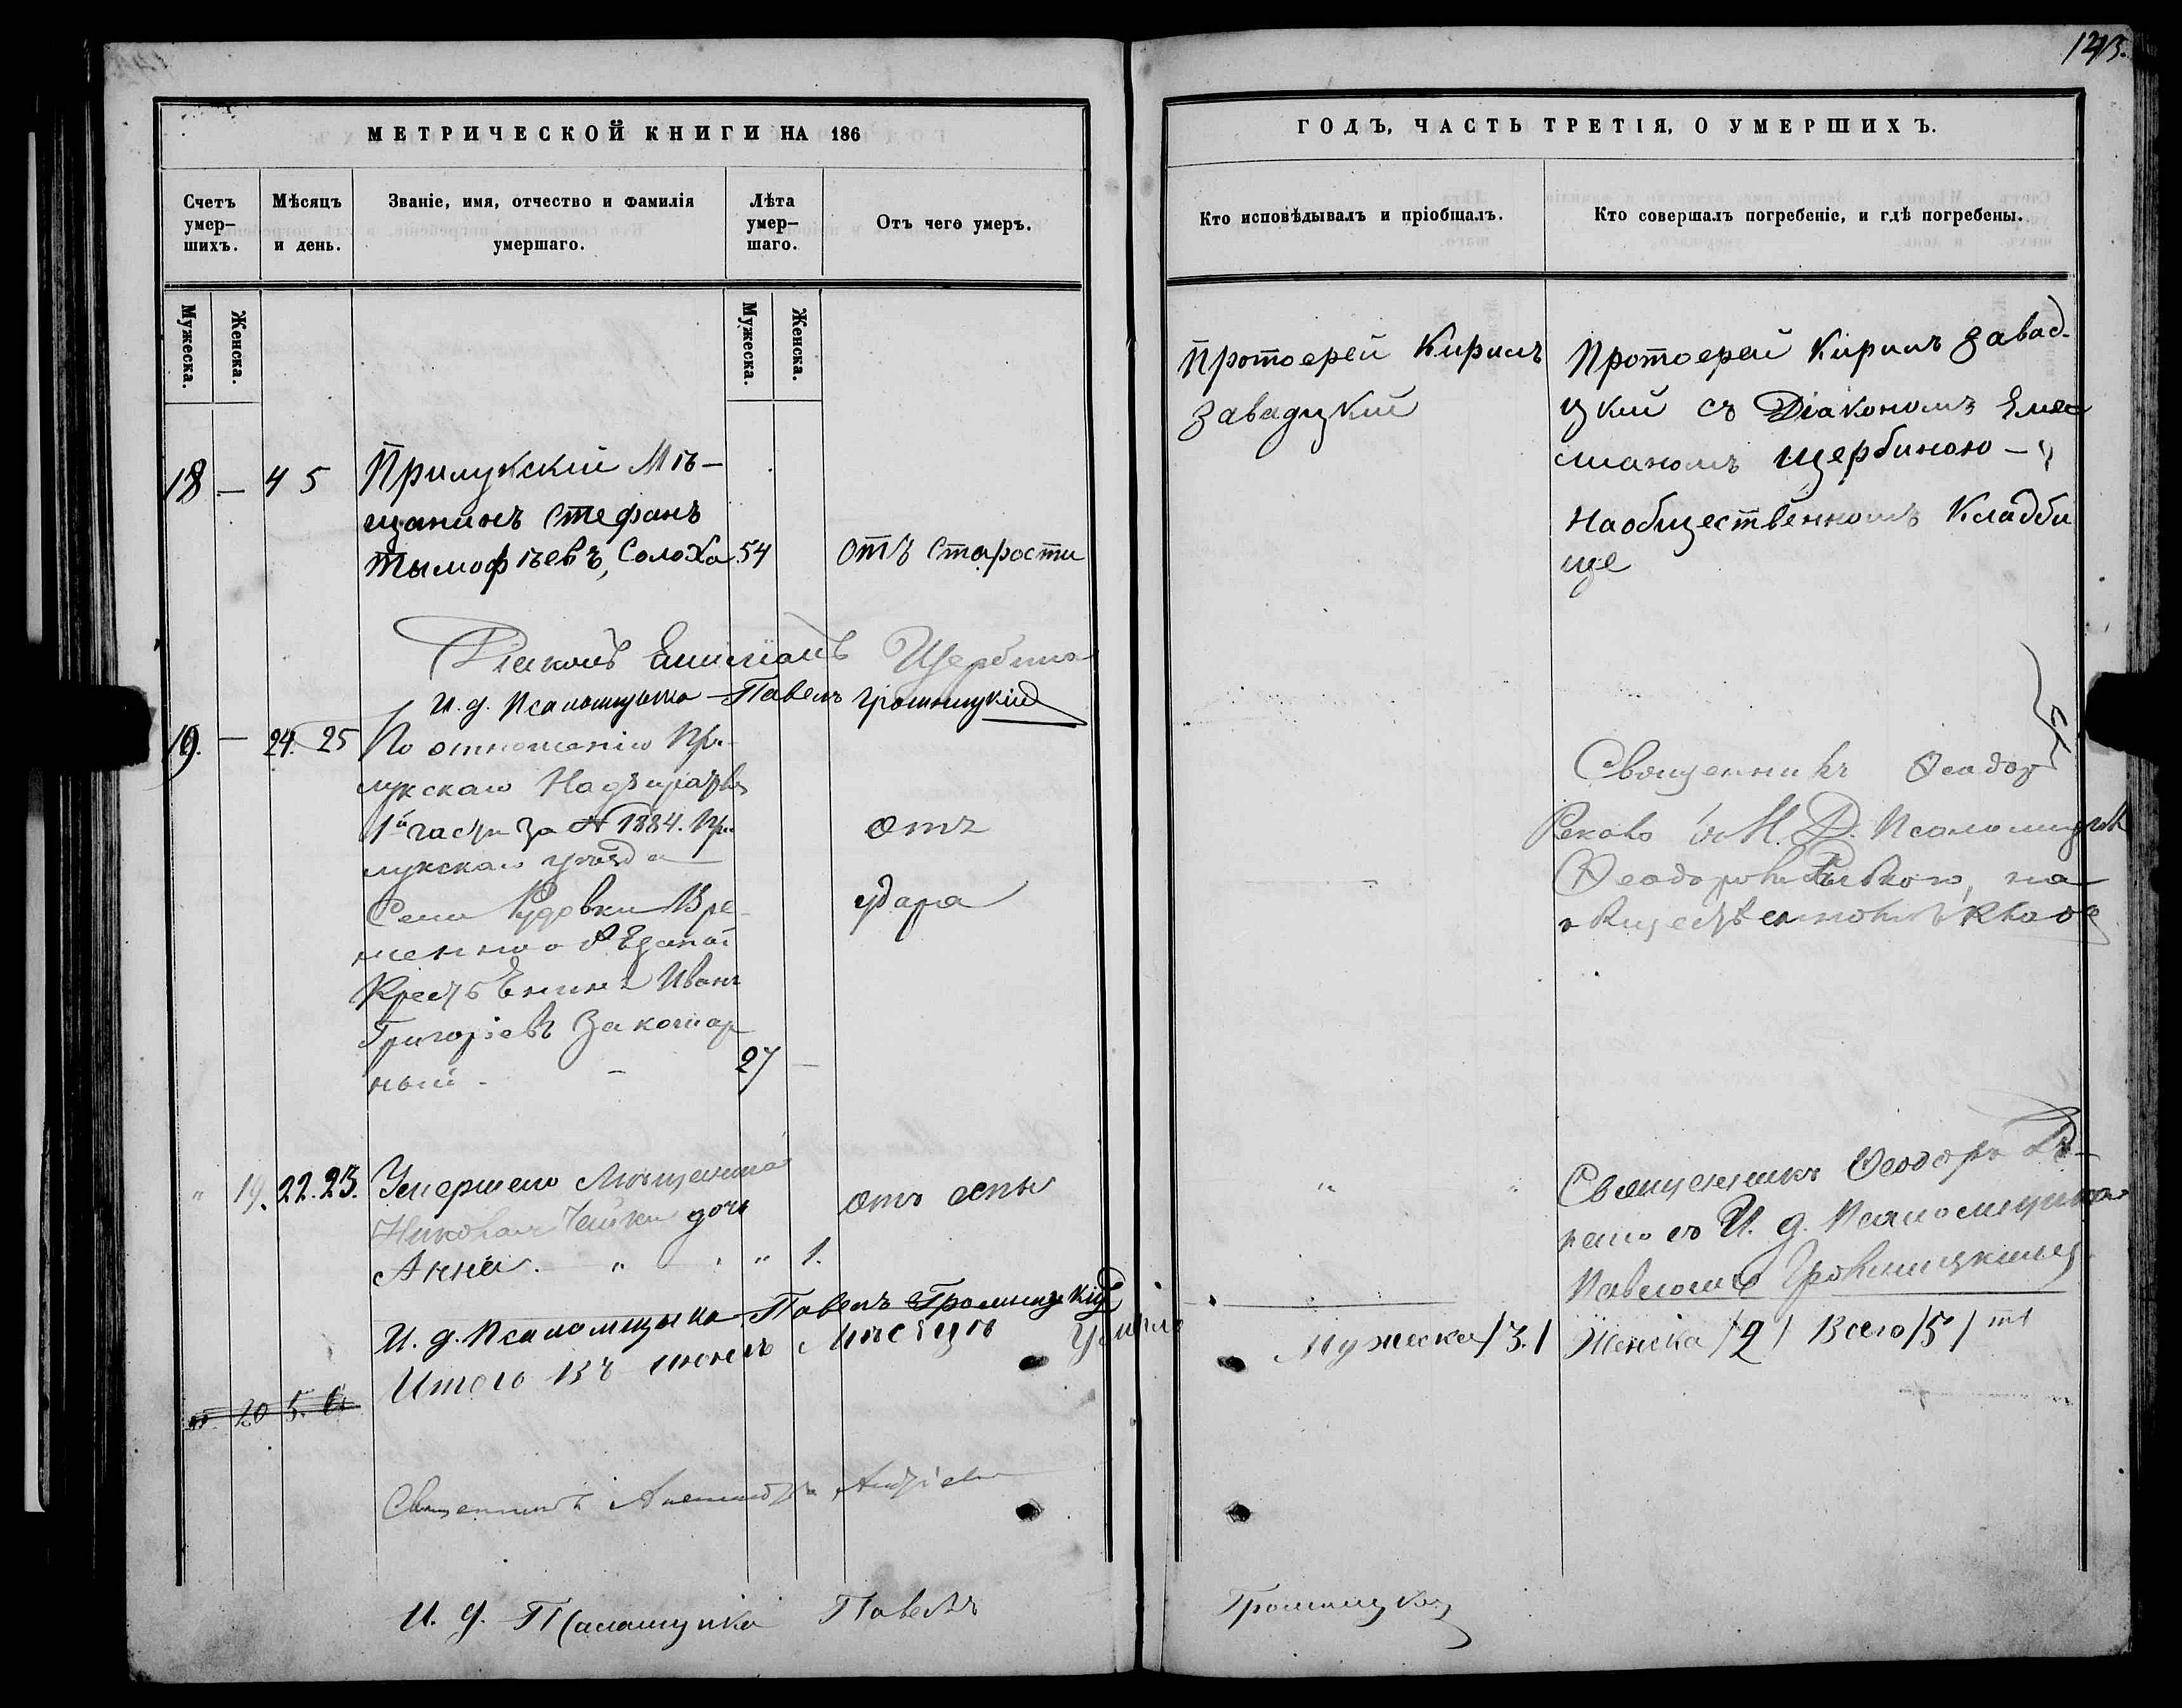 143.
МЕТРИЧЕСКОЙ КНИГИ НА 186
ГОДЪ, ЧАСТЬ ТРЕТІЯ, О УМЕРШИХЪ.
Счетъ умер-
шихъ.
Мѣсяцъ
и день.
Званіе, имя, отчество и фамилія
умершаго.
Лѣта
умер-
шаго.
Отъ чего умеръ.
Кто исповѣдывалъ и пріобщалъ.
Кто совершалъ погребеніе, и гдѣ погребены.
Мужеска.
Женска.
Мужеска.
Женска.
18 — 4 5
Прилукскій Мѣ-
щанинъ Стефанъ
Тымофѣевъ, Солоха 54
отъ старости
Протоерей Кирилъ
Завадцкій
Протоерей Кирилъ Завад-
цкій съ Діакономъ Еме-
ліаномъ Щербиною —
На общественномъ Кладби
ще
Діаконъ Емиліанъ Щербина
И. д. Псаломщика Павелъ Громницкій
19. — 24. 25
По отношенію При-
лукскаго Надзирателя
1й части за № 1884. При-
лукскаго уѣзда
Села Рудовки Вре-
менно обязаной
Крестьянинъ Иванъ
Григоріевъ Закошар
ный. 27 —
отъ
удара
Священникъ Ѳеодоръ
И. Д. Псаломщик
Ѳеодоромъ на
общественномъ клад
" 19. 22. 23.
Умершаго Мѣщанина
Николая Чайки дочь
Анна. " " 1.
отъ оспы
Священникъ Ѳеодоръ
съ И. д. Псаломщика
Павломъ Громницкимъ
И. д. Псаломщика Павелъ Громницкій
Итого въ іюнѣ Мѣсяцѣ Умерло
Мужеска /3./ Женска /2/ Всего /5/ ть
20 5. 6.
Священникъ Александръ
И. д. Псаломщика Павелъ Громницкій